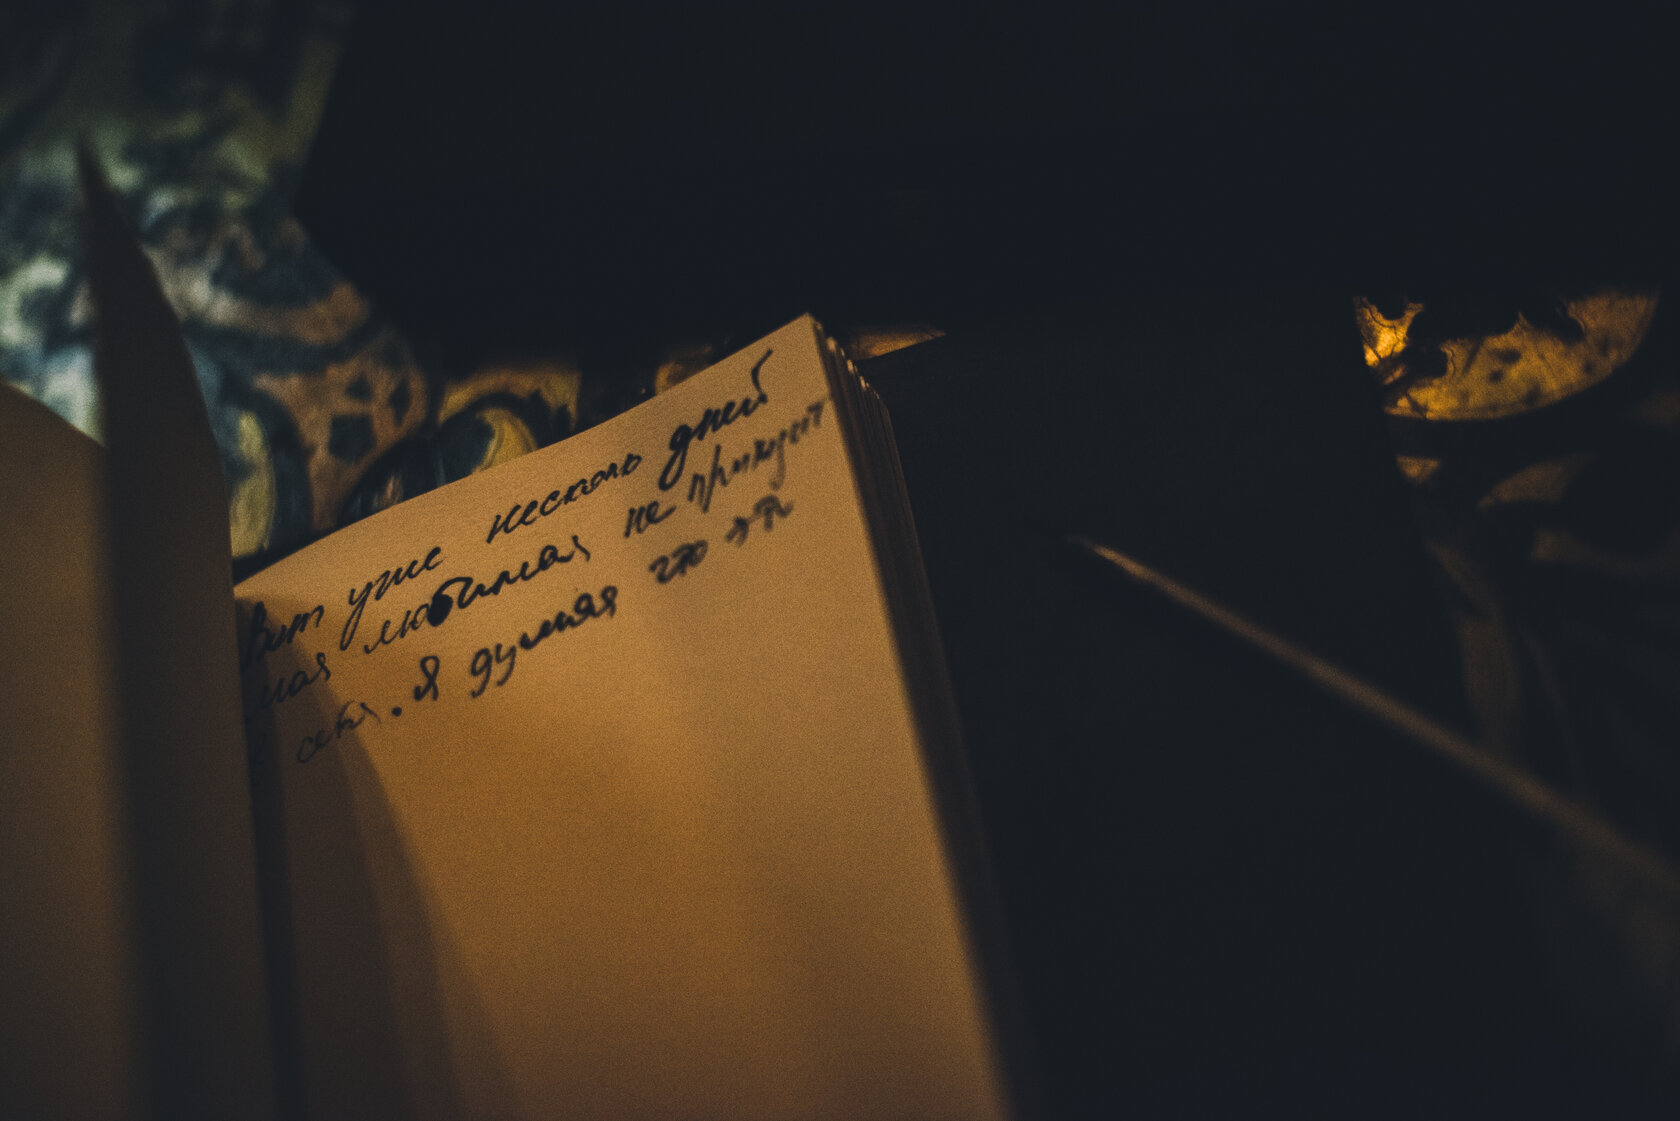 Вот уже несколь дней
моя любимая не приходит
в себя. Я думая что я